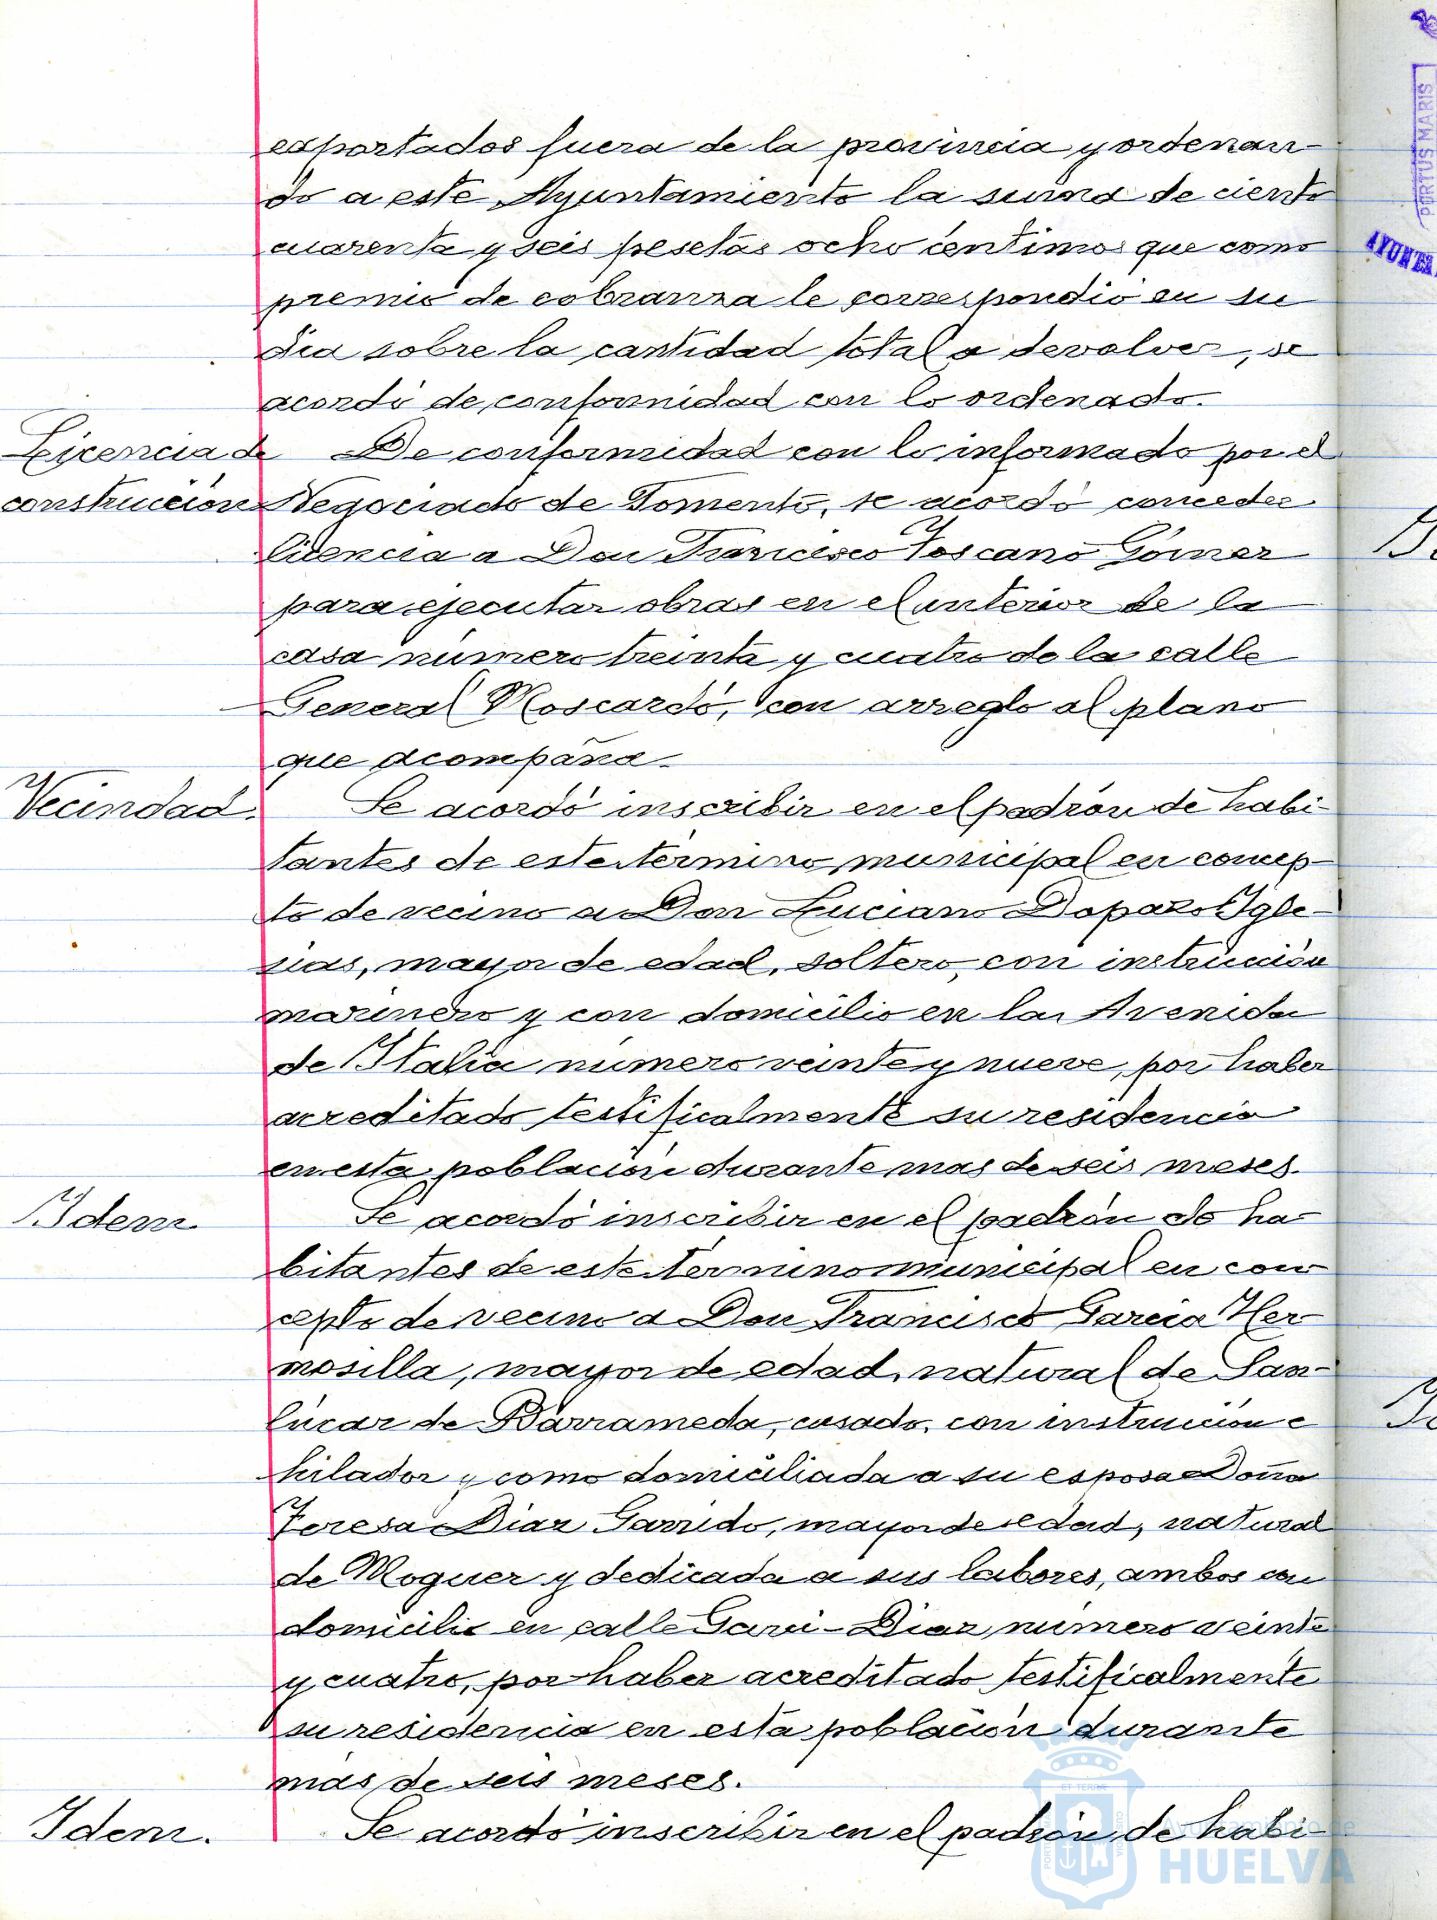 exportados fuera de la provincia y ordenan-
do a este Ayuntamiento la suma de ciento
cuarenta y seis pesetas ocho céntimos que como
premio de cobranza le correspondió en su
día sobre la cantidad total a devolver, se
acordó de conformidad con lo ordenado.
Licencia de
construcción
De conformidad con lo informado por el
Negociado de Fomento, se acordó conceder
licencia a Don Francisco Toscano Gómez
para ejecutar obras en el interior de la
casa número treinta y cuatro de la calle
General Moscardó, con arreglo al plano
que acompaña.
Vecindad.
Se acordó inscribir en el padrón de habi-
tantes de este término municipal en concep-
to de vecino a Don Luciano Dopazo Igle-
sias, mayor de edad, soltero, con instrucción
marinero y con domicilio en la Avenida
de Italia número veinte y nueve, por haber
acreditado testificalmente su residencia
en esta población durante mas de seis meses.
Idem
Se acordó inscribir en el padrón de ha-
bitantes de este término municipal en con
cepto de vecino a Don Francisco García Her
mosilla, mayor de edad, natural de San-
lúcar de Barrameda, casado, con instrucción e
hilador y como domiciliada a su esposa Doña
Teresa Díaz Garrido, mayor de edad, natural
de Moguer y dedicada a sus labores, ambos con
domicilio en calle Garci-Díaz número veinte
y cuatro, por haber acreditado testificalmente
su residencia en esta población durante
más de seis meses.
Idem.
Se acordó inscribir en el padrón de habi-
PORTUS MARIS
AYUNTA
Ayuntamiento de
HUELVA